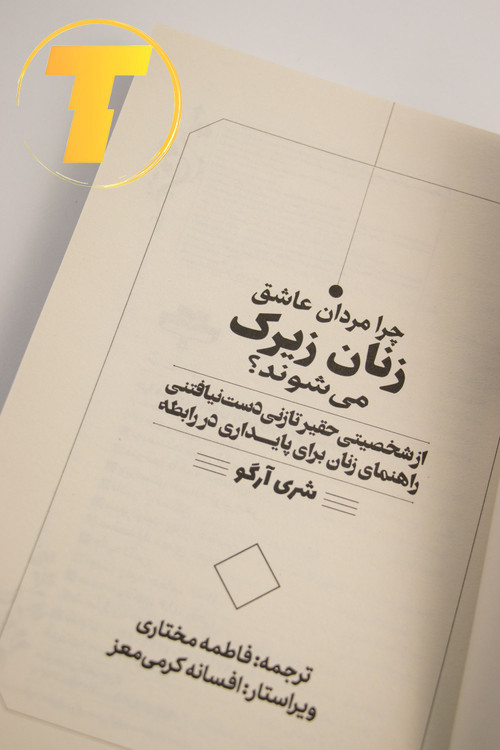 T
چرا مردان عاشق
زنان زیرک
می‌شوند؟
از شخصیتی حقیر تا زنی دست‌نیافتنی
راهنمای زنان برای پایداری در رابطه
شری آرگو
ترجمه: فاطمه مختاری
ویراستار: افسانه کرمی‌معز